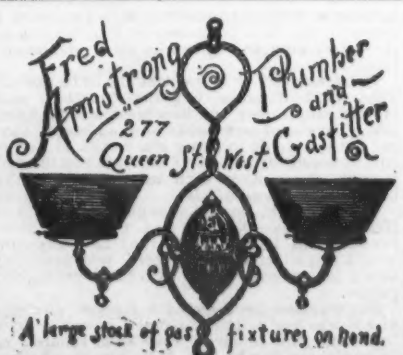 Fred
Armstrong
277
Queen St. West.
Plumber
and
Gasfitter
A large stock of gas fixtures on hand.